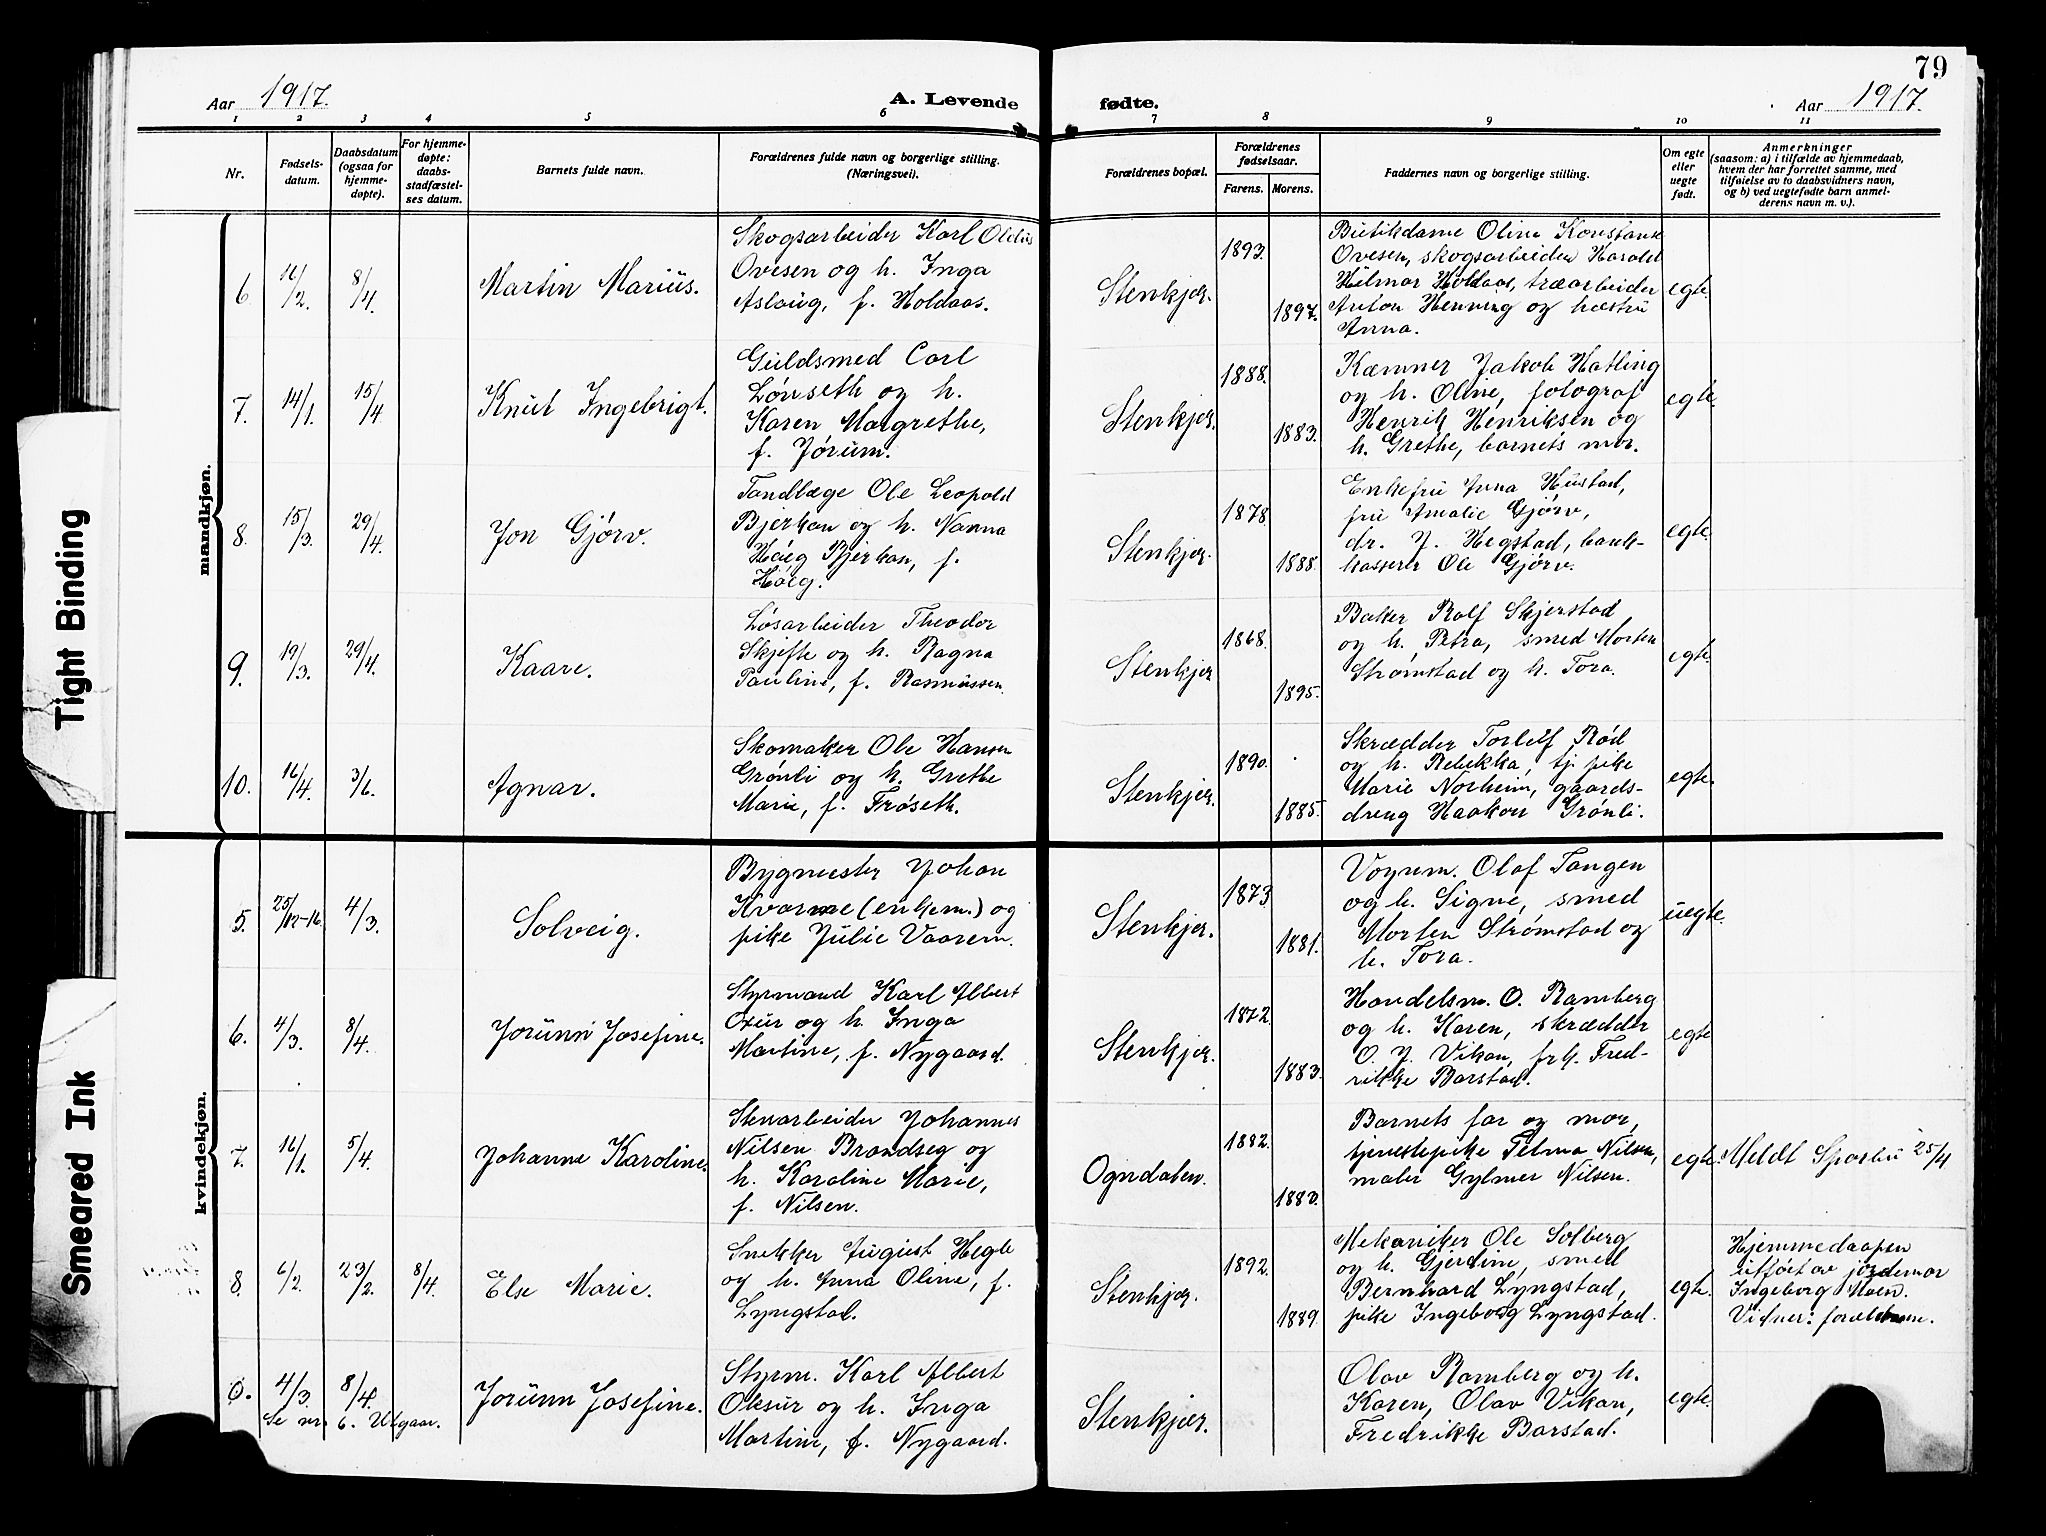 79
Aar 1917.
A. Levende
fødte.
Aar 1917.
1 2 3 4 5 6 7 8 9 10 11
Nr.
Fødsels-
datum.
Daabsdatum
(ogsaa for
hjemme-
døpte).
For hjemme-
døpte:
daabs-
stadfæstel-
ses datum.
Barnets fulde navn.
Forældrenes fulde navn og borgerlige stilling.
(Næringsvei).
Forældrenes bopæl.
Forældrenes
fødselsaar.
Farens. Morens.
Faddernes navn og borgerlige stilling.
Om egte
eller
uegte
født.
Anmerkninger
(saasom: a) i tilfælde av hjemmedaab,
hvem der har forrettet samme, med
tilføielse av to daabsvidners navn,
og b) ved uegtefødte barn anmel-
derens navn m. v.).
mandkjøn.
6. 16/2. 8/4. Martin Mariüs.
Skogsarbeider Karl Oldüs
Ovesen og h. Inga
Aslaüg, f. Holdaas.
Stenkjær.
1893.
1897.
Bütikdame Oline Konstanse
Ovesen, skogsarbeider Harald
Hilmar Holdaas, træarbeider
Anton Henning og hüstrü
Anna.
egte.
7. 14/1. 15/4 Knüt Ingebrigt.
Güldsmed Carl
Lønseth og h.
Karen Margrethe,
f. Jørüm.
Stenkjær.
1888.
1883.
Kæmner Jakob Hatling
og h. Oline, fotograf
Henrik Henriksen og
h. Grethe, barnets mor.
egte.
8. 15/3. 29/4. Jon Gjørv.
Tandlæge Ole Leopold
Bjerkan og h. Nanna
Höeg Bjerkan, f.
Höeg.
Stenkjær.
1878.
1888.
Enkefrü Anna Hüstad,
frü Amalie Gjørv,
dr. J. Hegstad, bank-
kasserer Ole Gjørv.
egte.
9. 19/3. 29/4. Kaare.
Løsarbeider Theodor
Skjefte og h. Ragna
Paüline, f. Rasmüssen.
Stenkjær
1868.
1895.
Baker Rolf Skjerstad
og h. Petra, smed Morten
Strømstad og h. Tora.
egte.
10. 16/4. 3/6. Agnar.
Skomaker Ole Hansen
Grønli og h. Grethe
Marie, f. Frøseth.
Stenkjær.
1890.
1885.
Skrædder Torleif Röd
og h. Rebekka, tj. pike
Marie Norheim, gaards-
dreng Haakon Grønli.
egte.
kvindekjøn.
5. 25/12-16. 4/3. Solveig.
Bygmester Johan
Kvarme (enkem.) og
pike Jülie Vaarem.
Stenkjær.
1873
1881.
Vognm. Olaf Tangen
og h. Signe, smed
Morten Strømstad og
h. Tora.
üegte.
6. 4/3. 8/4. Jorünn Josefine.
Styrmand Karl Albert
Oxür og h. Inga
Martine, f. Nygaard.
Stenkjær.
1872.
1883.
Handelsm. O. Ramberg
og h. Karen, skrædder
O. J. Vikan, frk. Fred-
rikke Barstad.
egte
7. 16/1. 5/4. Johanne Karoline.
Stenarbeider Johannes
Nilsen Brandseg og
h. Karoline Marie,
f. Nilsen.
Ogndalen.
1882.
1880.
Barnets far og mor,
tjenestepike Telma Nilsen,
maler Gylmer Nilsen.
egte.
Meldt Sparbü 25/4
8. 6/2. 23/2. 8/4. Else Marie.
Snekker Aügüst Hegle
og h. Anna Oline, f.
Lyngstad.
Stenkjær.
1892.
1889.
Mekaniker Ole Solberg
og h. Gjerdine, smed
Bernhard Lyngstad,
pike Ingeborg Lyngstad.
egte.
Hjemmedaapen
ütført av jordemor
Ingeborg Moen.
Vidner: forældrene.
0. 4/3 8/4. Jorünn Josefine.
Se nr. 6. Utgaar.
Styrm. Karl Albert
Oksür og h. Inga
Martine, f. Nygaard.
Stenkjær.
Olav Ramberg og h.
Karen, Olav Vikan,
Fredrikke Barstad.
egte.
Tight Binding
Smeared Ink